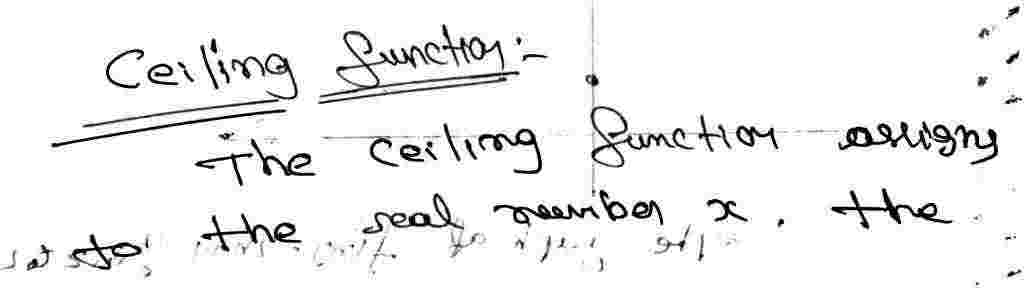 Ceiling function:-
The ceiling function assigns
to the real number x. the